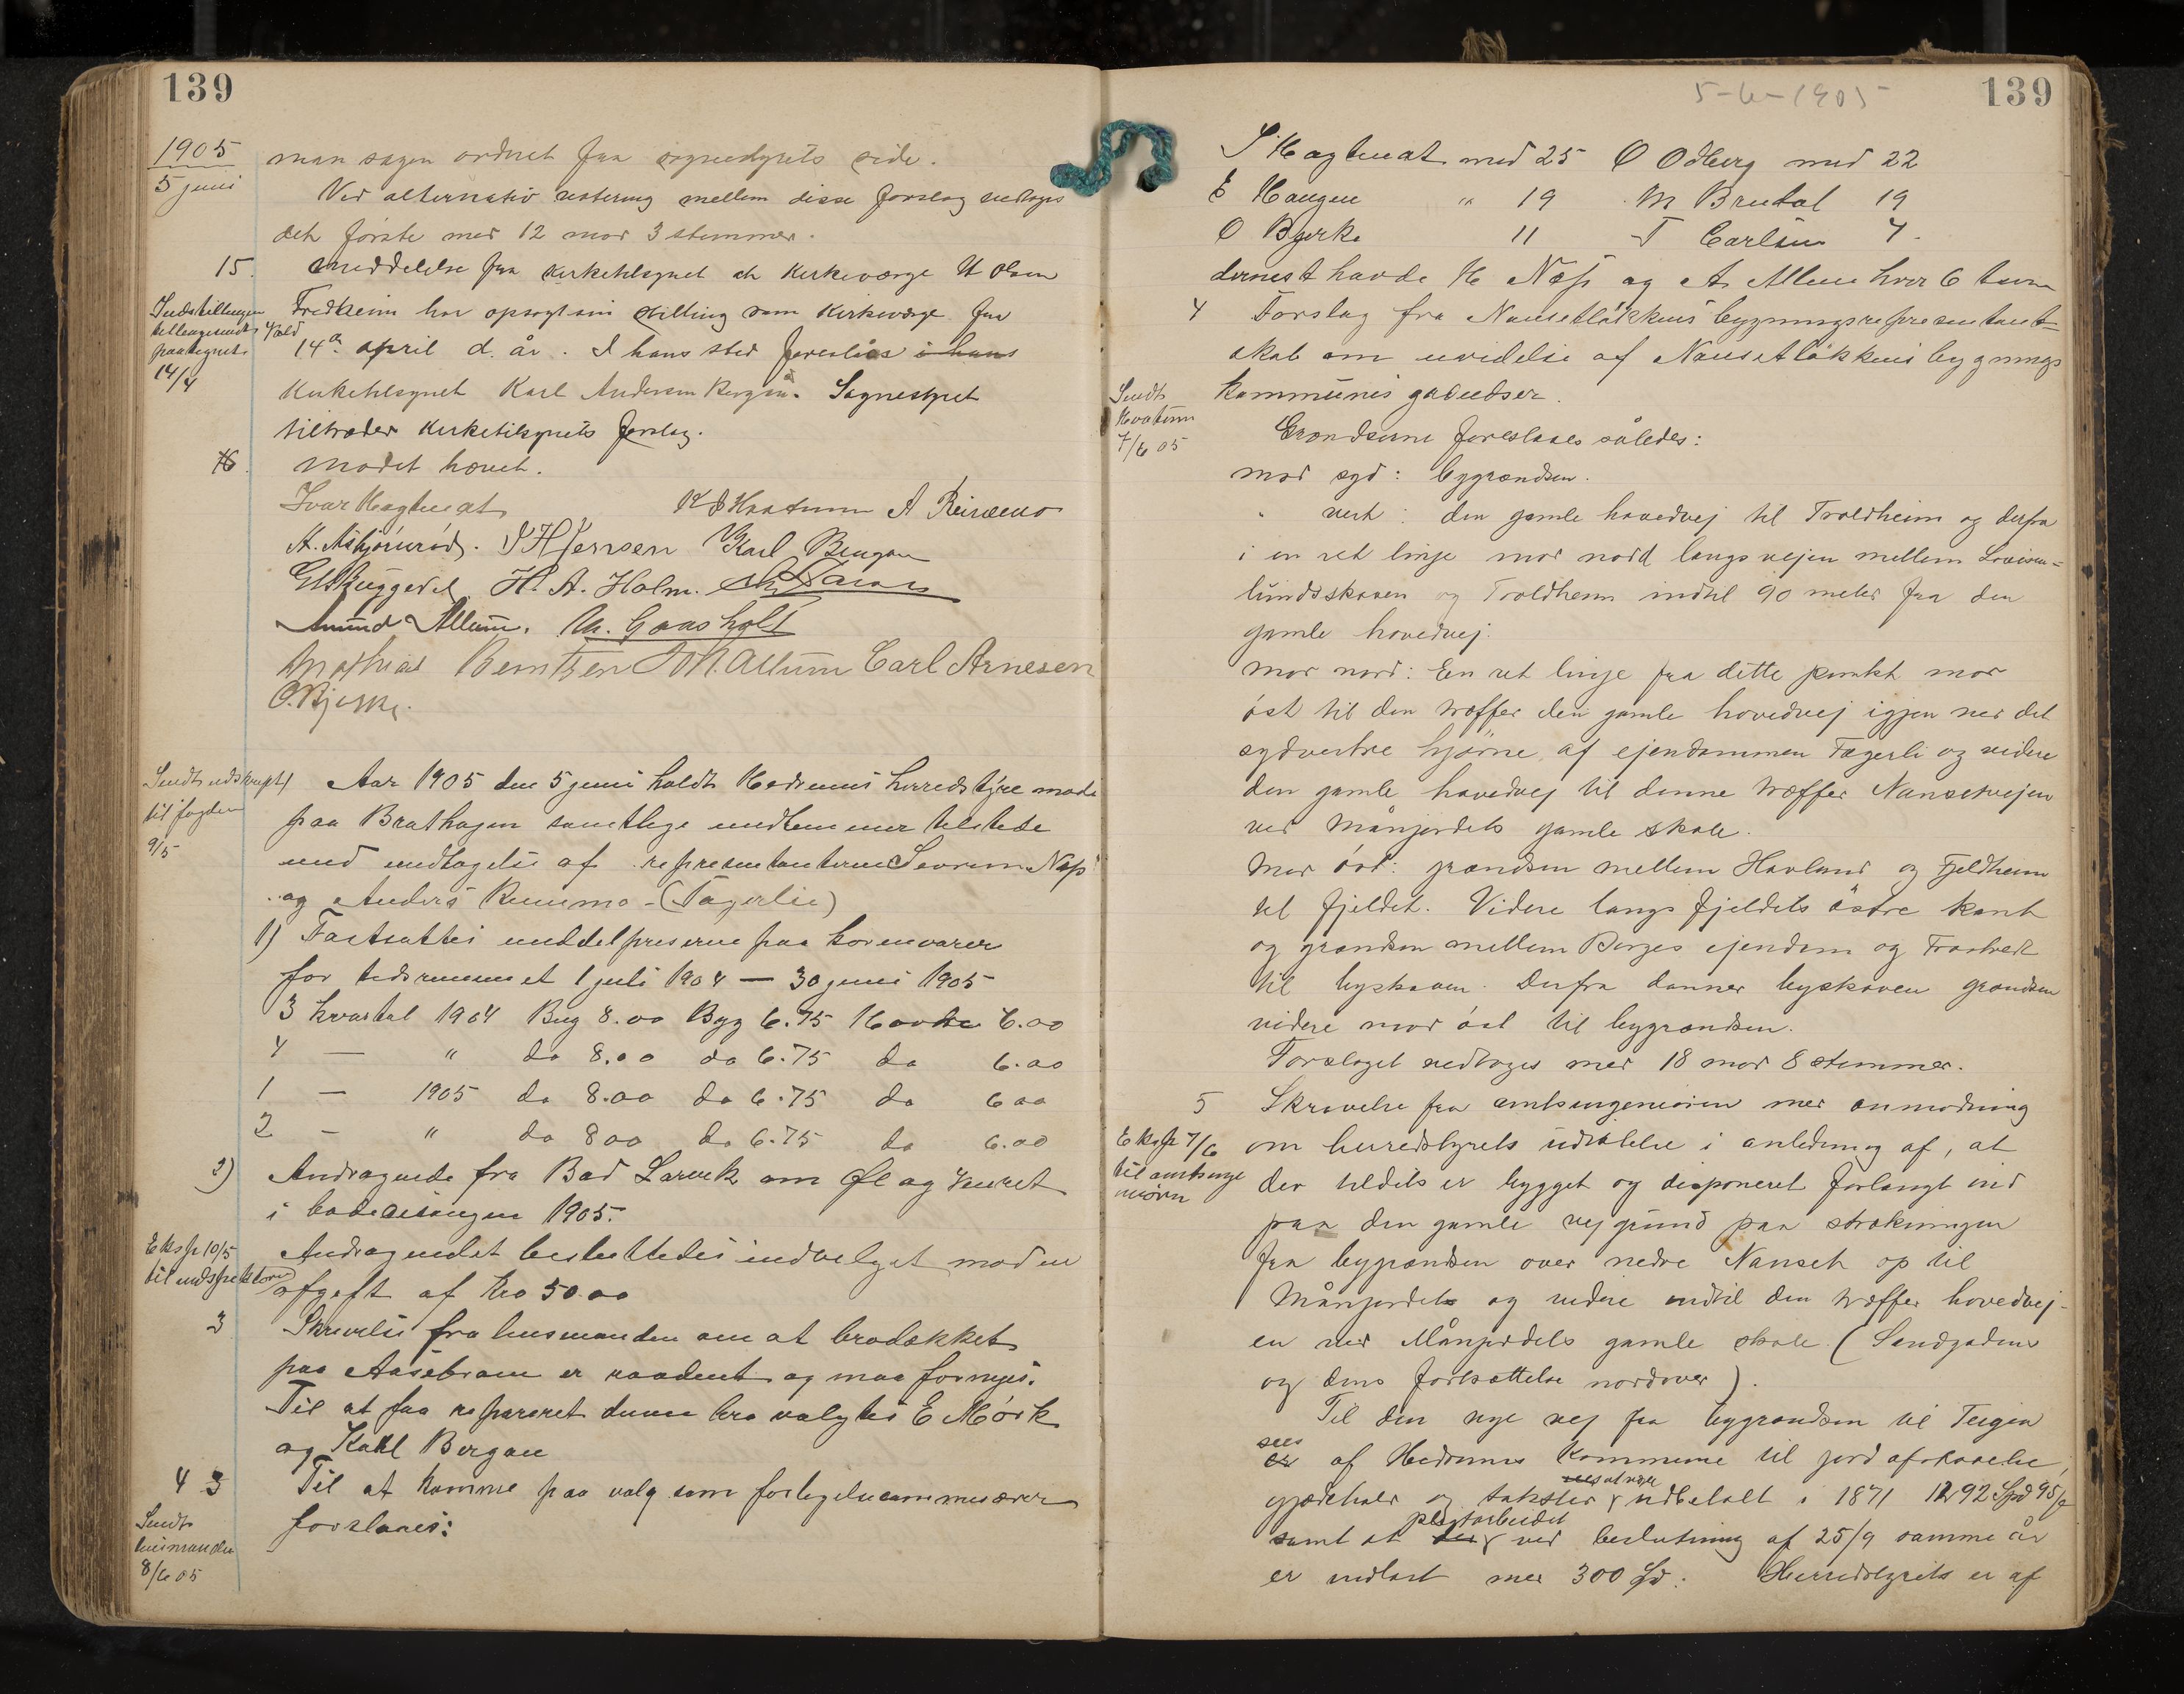 139
1905
5 juni
man sagen ordnet fra sognestyrets side.
Ved alternativ votering mellem disse forslag vedtoges
det første med 12 mod 3 stemmer.
15. Meddelelse fra kirketilsynet at kirkeværge H Olsen
Indstillingen
tilbagesendt
paategnet
14/4
Fredheim har opsagt sin stilling som kirkeværge fra
14de april d. år. I hans sted foreslåes i hans
kirketilsynet Karl Andersen Bergan. Sognestyret
tiltræder kirketilsynets forslag.
16. Mødet hævet.
Ivar Hagtneat A Reisæno
A. Asbjörnröd. J H Jensen Karl Bergan
H. A. Holm.
Amund Allum. M. Gaasholt
Mathias Berntsen M. Allum Carl Arnesen
O. Bjerke.
Sendt udskrift
til fogden
9/5
Aar 1905 den 5 juni holdt Hedrums herredstyre møde
paa Brathagen samtlige medlemmer tilstede
med undtagelse af representanterne Severin Næss
og Anders Rimmo - (Fagerlie)
1) Fastsattes middelpriserne paa kornvarer
for tidsrummet 1 juli 1904 — 30 juni 1905
3 kvartal 1904 Bug 8.00 Byg 6.75 Havre 6.00
4 — " do 8.00 do 6.75 do 6.00
1 — 1905 do 8.00 do 6.75 do 6 00
2 — " do 8 00 do 6.75 do 6.00
2) Andragende fra Bad Larvik om Øl og Vinret
i badesæsongen 1905.
Eksp 10/5
til indspektøren
Andragendet besluttedes indvilget mod en
afgift af kro 50.00
3 Skrivelse fra lensmanden om at brodækket
paa Aasebroen er raadent og maa fornyes.
Til at faa repareret denne bro valgtes E Mørk
og Karl Bergan
4 3 Til at komme paa valg som forligelsescommisærer
Sendt
lensmanden
8/6 05
forslaaes:
5-6-1905
139
I Hagtneat med 25 O Odberg med 22
E Haugen " 19 M Brutal 19
O Bjerke 11 T Carlsen 7.
dernest havde H Næss og A. Allum hver 6 stem
4 Forslag fra Nansetløkkens bygningsrepresentant-
skab om uvidelse af Nansetløkkens bygnings
Sendt
Kvatum
7/6 05
kommunes grændser.
Grændserne foreslaaes således:
mod syd: bygrændsen.
" vest: den gamle hovedvej til Troldheim og derfra
i en ret linje mod nord langs vejen mellem Lovisen-
lundsskoven og Troldheim indtil 90 meter fra den
gamle hovedvej.
Mod nord: En ret linje fra dette punkt mod
öst til den træffer den gamle hovedvej igjen ved det
sydvestre hjørne af ejendommen Fagerli og videre
den gamle hovedvej til denne træffer Nansetvejen
ved Månejordets gamle skole.
Mod öst: grændsen mellem Havland og Fjeldheim
til fjeldet. Videre langs fjeldets östre kant
og grændsen mellem Borges ejendom og Frostvedt
til byskoven. Derfra danner byskoven grændsen
videre mod öst til bygrændsen.
Forslaget vedtoges med 18 mod 8 stemmer.
5 Skrivelse fra amtsingeniøren med anmodning
Eksp 7/6
til amtsinge
niøren
om herredstyrets udtalelse i anledning af, at
der tildels er bygget og disponeret forlangt ind
paa den gamle vejgrund paa strækningen
fra bygrændsen over nedre Nanset op til
Månejordet og videre indtil den træffer hovedvej-
en ved Månejordets gamle skole. (Sandgaden
og dens fortsættelse nordover).
Til den nye vej fra bygrændsen til Teigen
sees
er af Hedrums kommune til jordafstaaelse,
gjærdehold og takster udbetalt i 1871 1292 Spd 95/
samt at der ved beslutning af 25/9 samme år
er indløst med 300 Spd. Herredstyrets er af